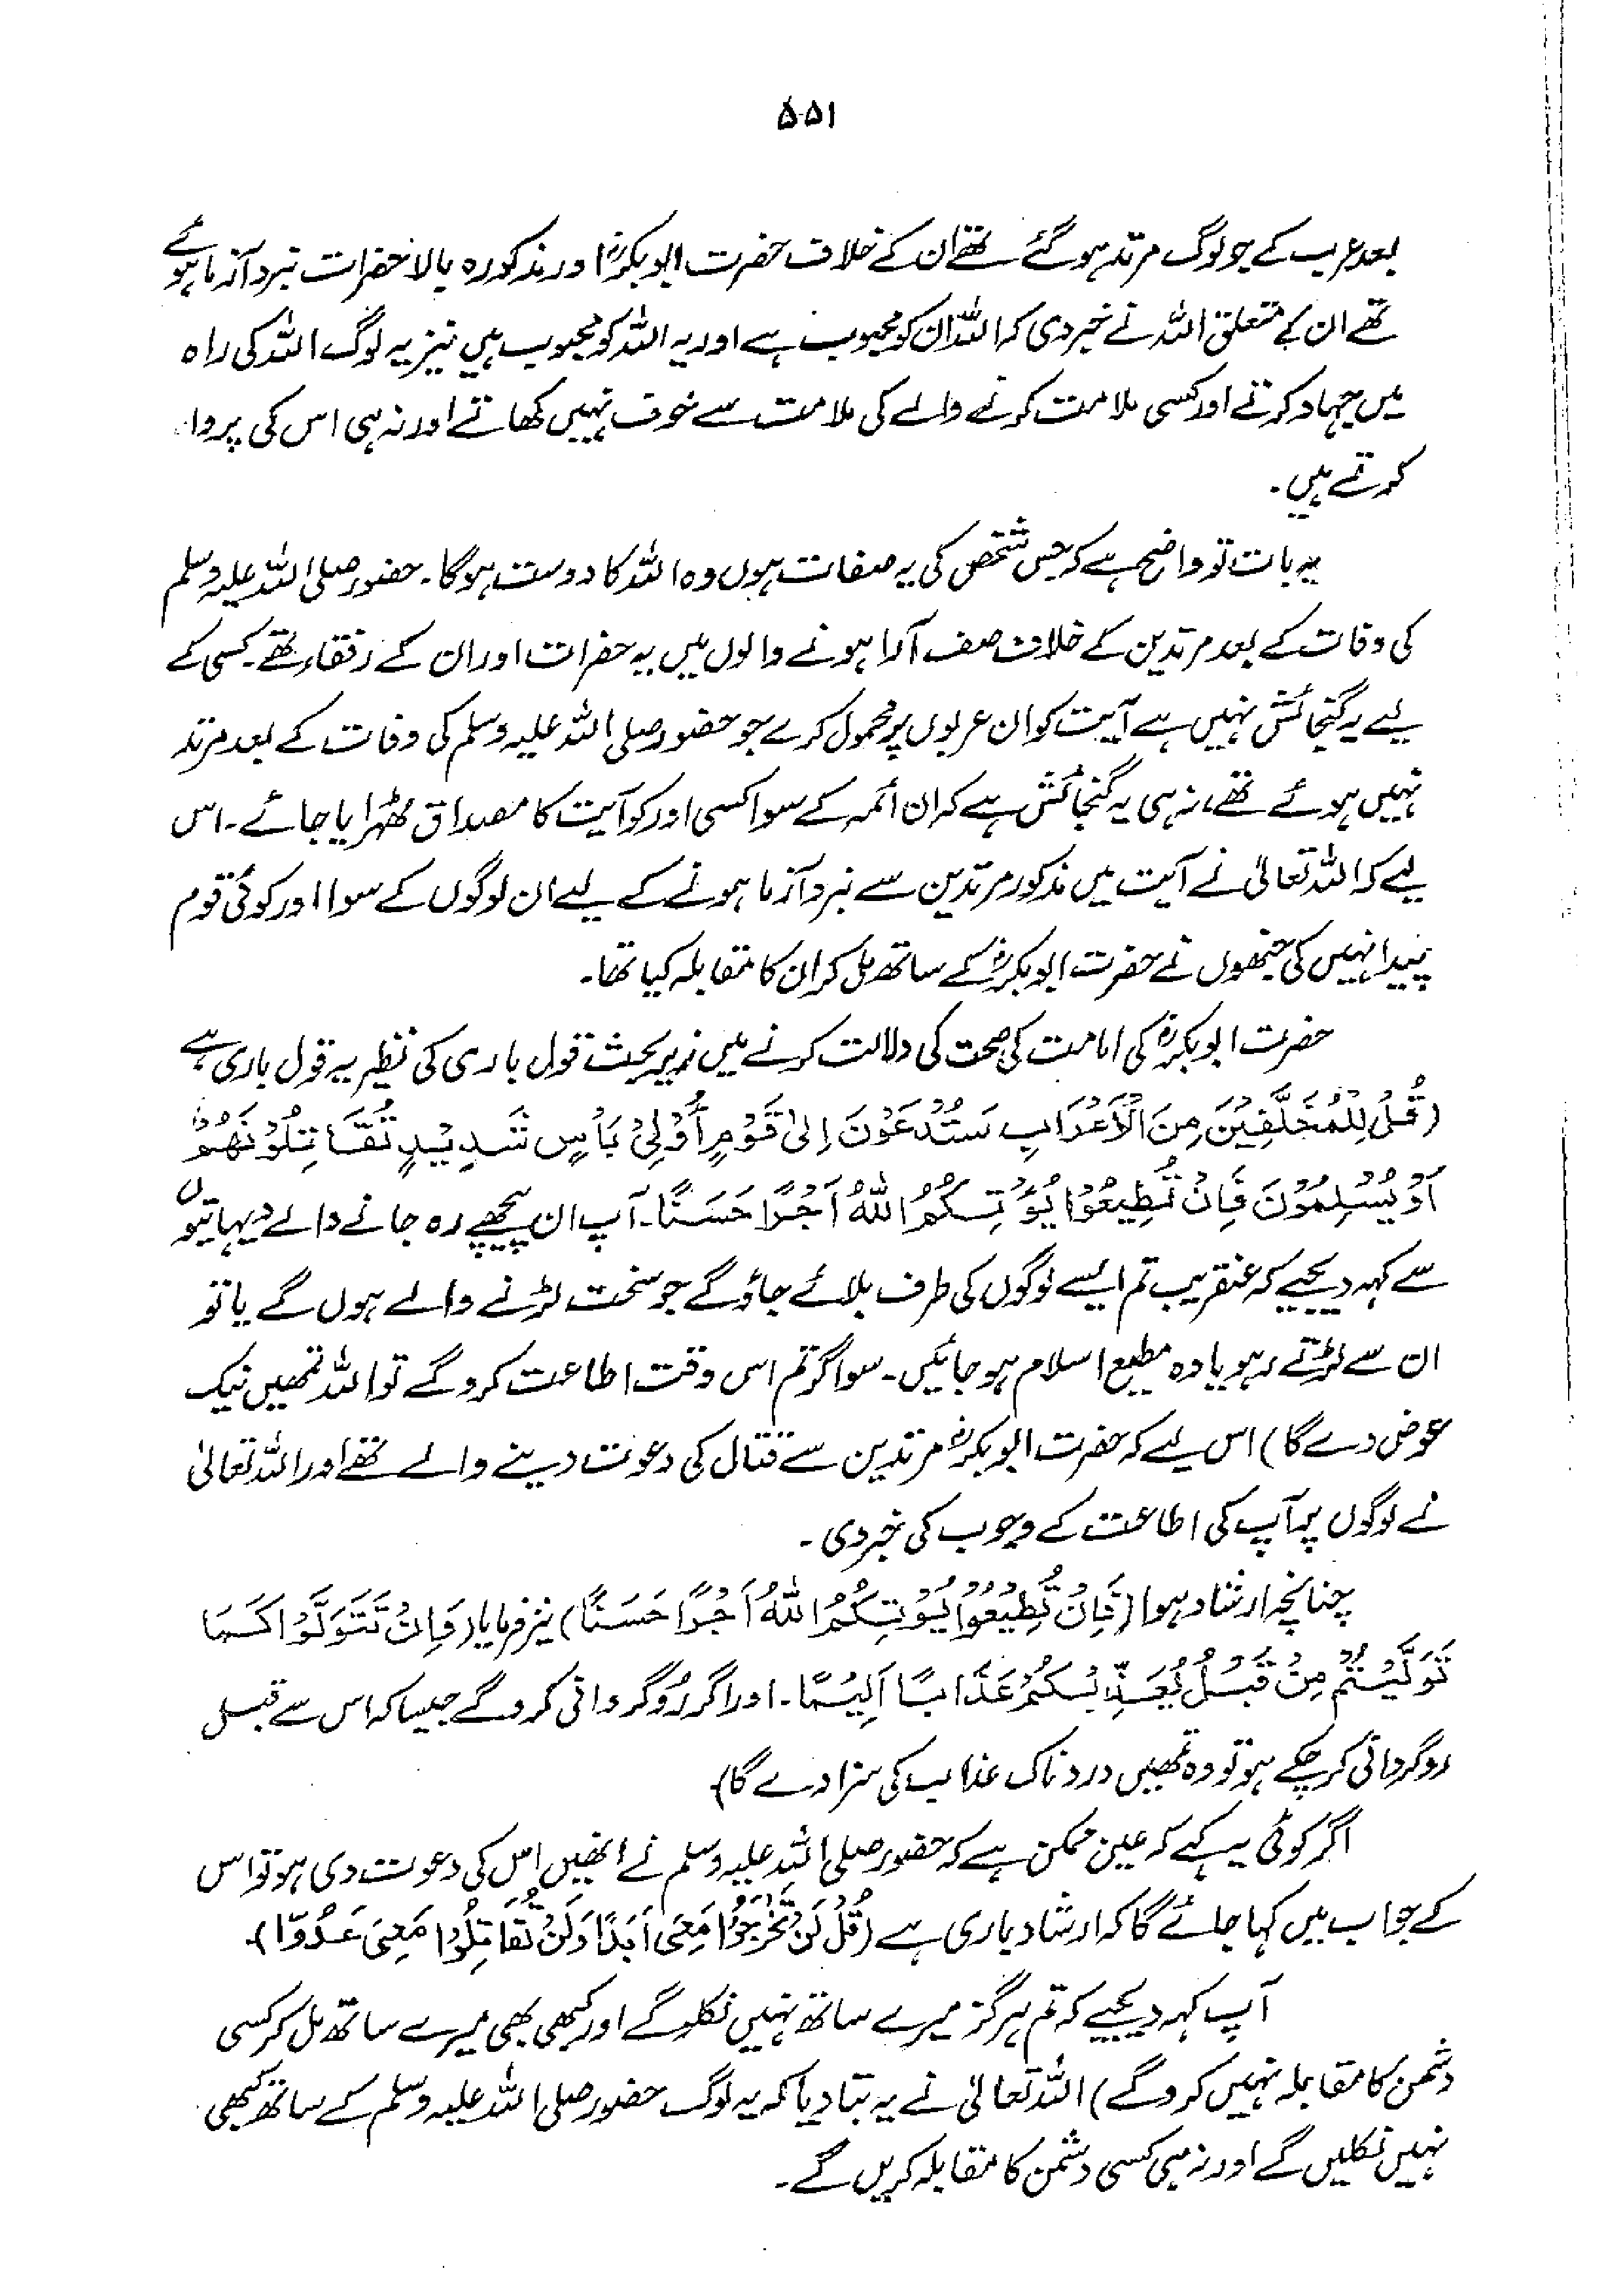 ۵۵۱
بعد عرب کے جو لوگ مرتد ہوگئے تھے ان کے خلاف حضرت ابوبکرؓ اور مذکورہ بالا حضرات نبرد آزما ہوئے
تھے ان کے متعلق اللہ نے خبر دی کہ اللہ ان کو محبوب ہے اور یہ اللہ کو محبوب ہیں نیز یہ لوگ اللہ کی راہ
میں جہاد کرتے اور کسی ملامت کرنے والے کی ملامت سے خوف نہیں کھاتے اور نہ ہی اس کی پروا
کرتے ہیں۔
یہ بات تو واضح ہے کہ جس شخص کی یہ صفات ہوں وہ اللہ کا دوست ہوگا۔ حضور صلی اللہ علیہ وسلم
کی وفات کے بعد مرتدین کے خلاف صف آرا ہونے والوں میں یہ حضرات اور ان کے رفقاء تھے۔ کسی کے
لیے یہ گنجائش نہیں ہے آیت کو ان عربوں پر محمول کرے جو حضور صلی اللہ علیہ وسلم کی وفات کے بعد مرتد
نہیں ہوئے تھے، نہ ہی یہ گنجائش ہے کہ ان ائمہ کے سوا کسی اور کو آیت کا مصداق ٹھہرایا جائے۔ اس
لیے کہ اللہ تعالیٰ نے آیت میں مذکور مرتدین سے نبرد آزما ہونے کے لیے ان لوگوں کے سوا اور کوئی قوم
پیدا نہیں کی جنھوں نے حضرت ابوبکرؓ کے ساتھ مل کر ان کا مقابلہ کیا تھا۔
حضرت ابوبکرؓ کی امامت کی صحت کی دلالت کرنے میں زیر بحث قول باری کی نظیر یہ قول باری ہے
(قُلْ لِلْمُخَلَّفِیْنَ مِنَ الْاَعْرَابِ سَتُدْعَوْنَ اِلیٰ قَوْمٍ اُوْلِیْ بَاْسٍ شَدِیْدٍ تُقَاتِلُوْنَهُمْ
اَوْ یُسْلِمُوْنَ فَاِنْ تُطِیْعُوْا یُؤْتِکُمُ اللهُ اَجْرًا حَسَنًا۔ آپ ان پیچھے رہ جانے والے دیہاتیوں
سے کہہ دیجیے کہ عنقریب تم ایسے لوگوں کی طرف بلائے جاؤ گے جو سخت لڑنے والے ہوں گے یا تو
ان سے لڑتے رہو یا وہ مطیع اسلام ہو جائیں۔ سو اگر تم اس وقت اطاعت کرو گے تو اللہ تمھیں نیک
عوض دے گا) اس لیے کہ حضرت ابوبکرؓ مرتدین سے قتال کی دعوت دینے والے تھے اور اللہ تعالیٰ
نے لوگوں پر آپ کی اطاعت کے وجوب کی خبر دی۔
چنانچہ ارشاد ہوا (فَاِنْ تُطِیْعُوْا یُؤْتِکُمُ اللهُ اَجْرًا حَسَنًا) نیز فرمایا (وَاِنْ تَتَوَلَّوْا کَمَا
تَوَلَّیْتُمْ مِنْ قَبْلُ یُعَذِّبْکُمْ عَذَابًا اَلِیْمًا۔ اور اگر رُوگردانی کرو گے جیسا کہ اس سے قبل
روگردانی کر چکے ہو تو وہ تمھیں دردناک عذاب کی سزا دے گا)
اگر کوئی یہ کہے کہ عین ممکن ہے کہ حضور صلی اللہ علیہ وسلم نے انھیں اس کی دعوت دی ہو تو اس
کے جواب میں کہا جائے گا کہ ارشاد باری ہے (قُلْ لَنْ تَخْرُجُوْا مَعِیَ اَبَدًا وَلَنْ تُقَاتِلُوْا مَعِیَ عَدُوًّا)۔
آپ کہہ دیجیے کہ تم ہرگز میرے ساتھ نہیں نکلو گے اور کبھی بھی میرے ساتھ مل کر کسی
دشمن کا مقابلہ نہیں کرو گے) اللہ تعالیٰ نے یہ بتا دیا کہ یہ لوگ حضور صلی اللہ علیہ وسلم کے ساتھ کبھی
نہیں نکلیں گے اور نہ ہی کسی دشمن کا مقابلہ کریں گے۔